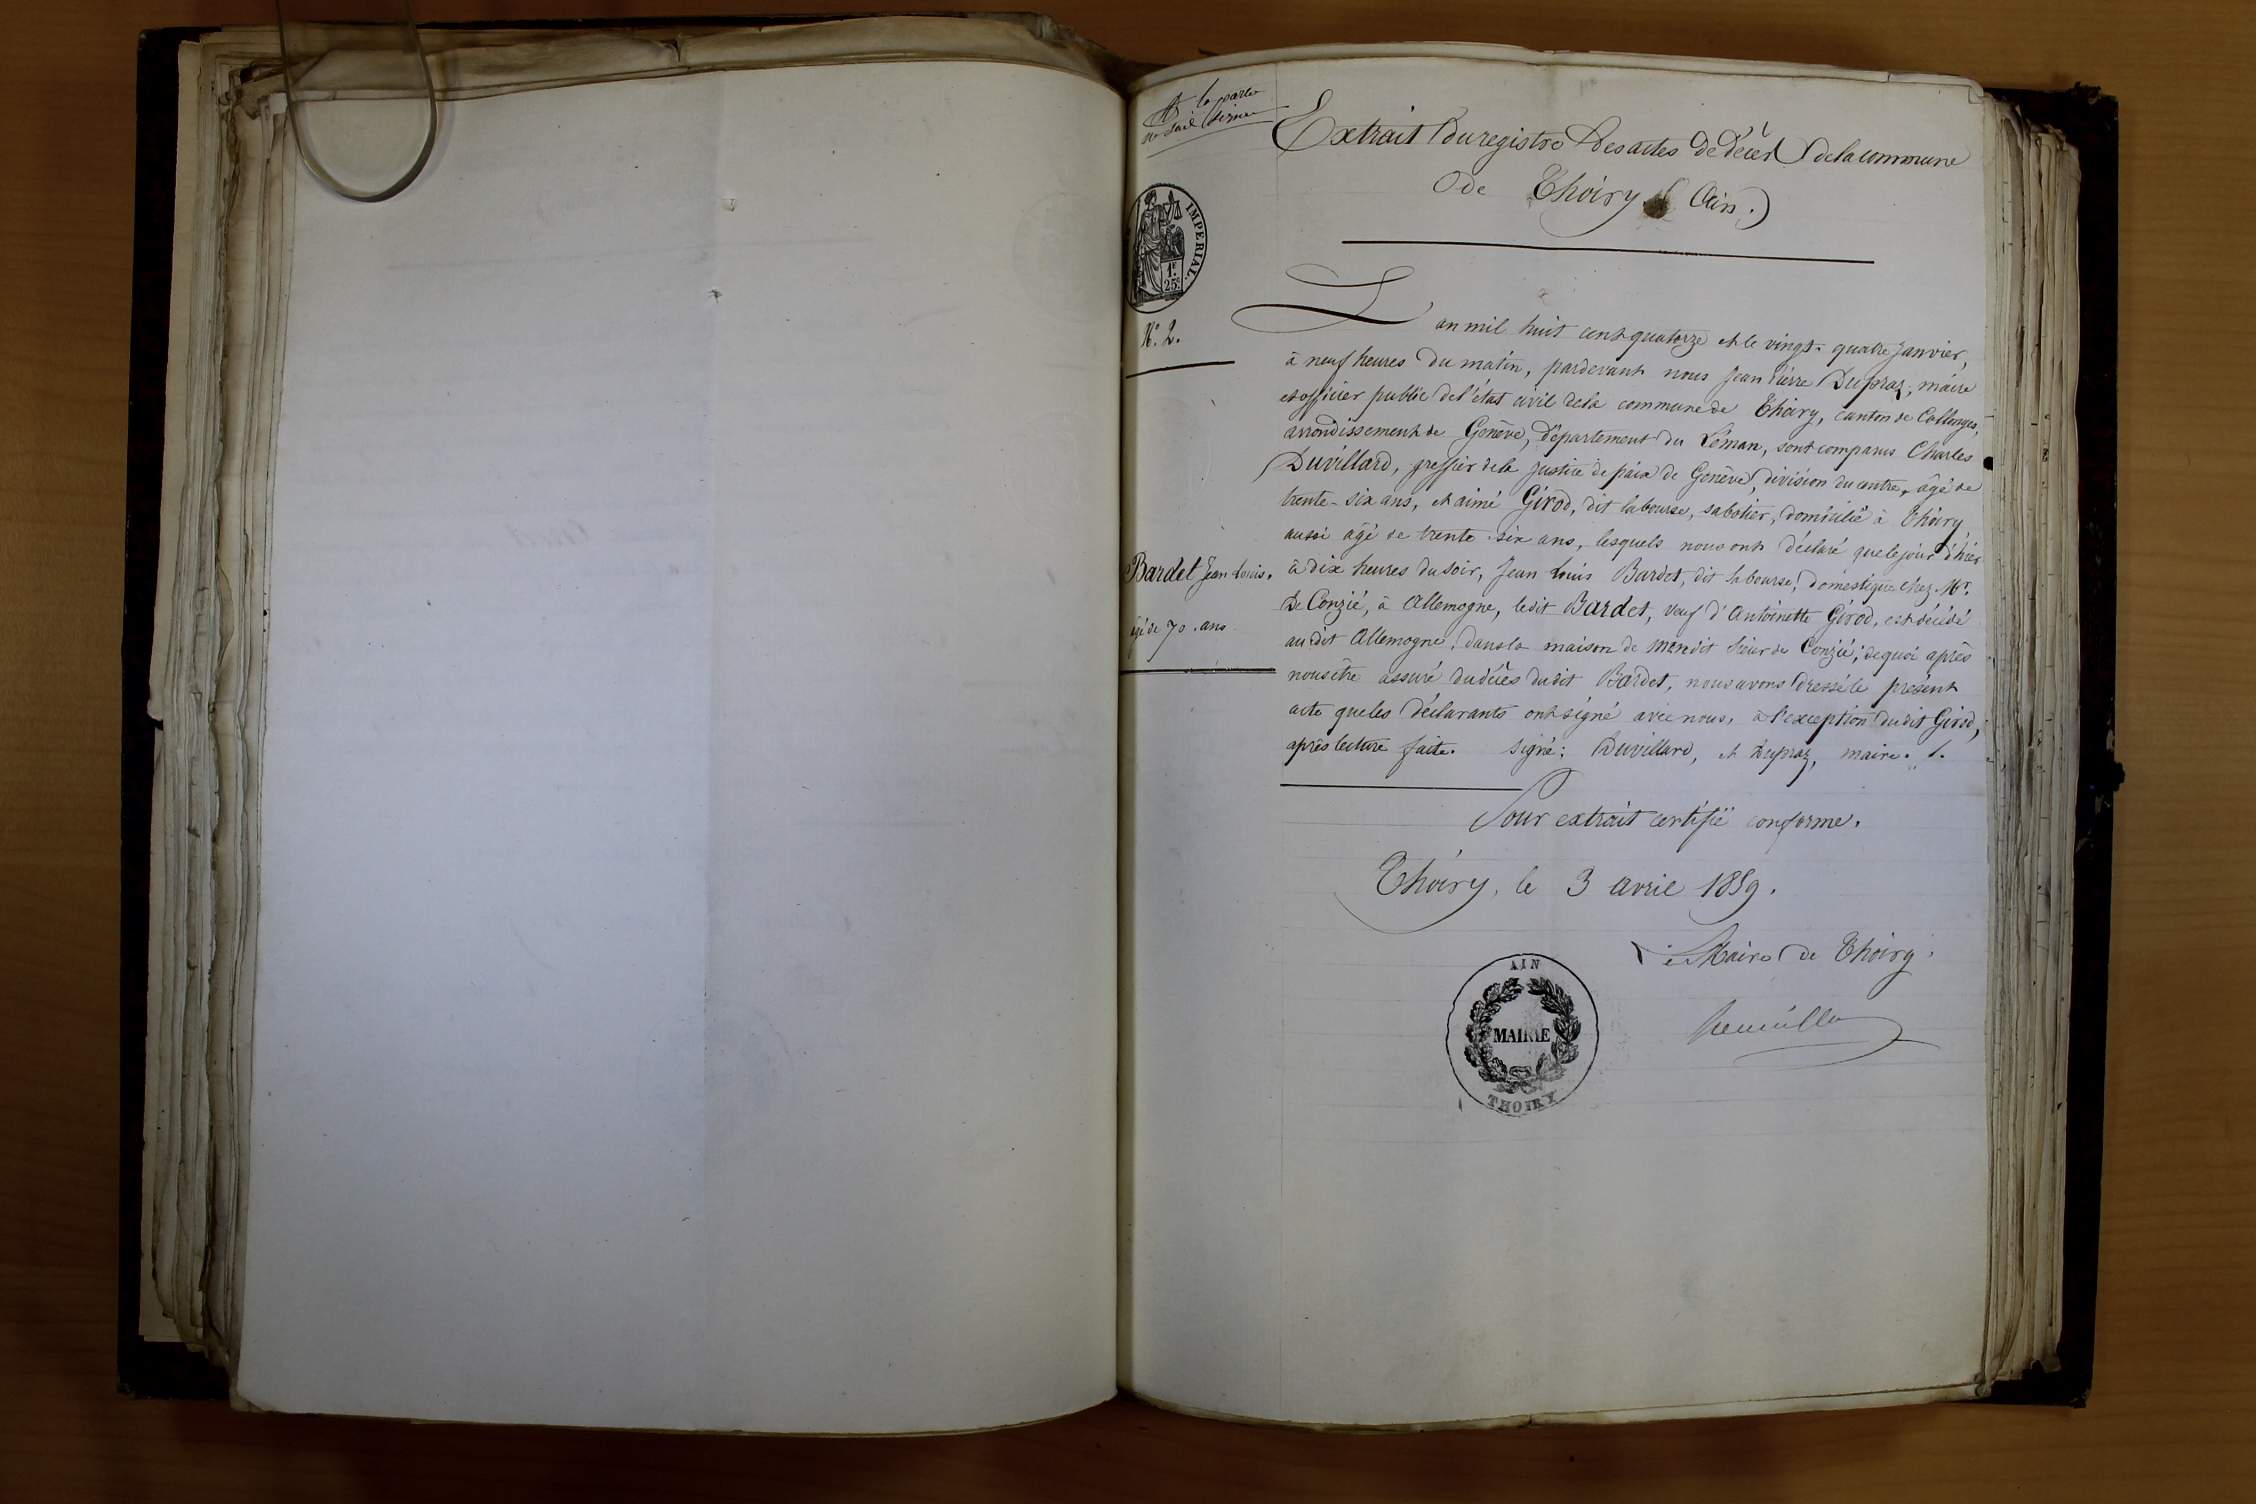 Extrait du registre des actes de décès de la commune
de Thoiry (Ain.)
IMPERIAL.
1F.
25C.
N.° 2.
L'an mil huit cent quatorze et le vingt-quatre janvier,
à neuf heures du matin, pardevant nous Jean Pierre Dupraz, maire
et officier public de l'état civil de la commune de Thoiry, canton de Collonges,
arrondissement de Genève, département du Léman, sont comparus Charles
Duvillard, greffier de la justice de paix de Genève, division du centre, âgé de
trente-six ans, et aimé Girod, dit labourse, sabotier, domicilié à Thoiry
aussi âgé de trente-six ans, lesquels nous ont déclaré que le jour d'hier
Bardet Jean Louis.
à dix heures du soir, Jean Louis Bardet, dit labourse, domestique chez Mr.
De Conzié, à Allemogne, ledit Bardet, veuf d'Antoinette Girod, est décédé
âgé de 70 ans
au dit Allemogne, dans la maison de mondit sieur de Conzié; de quoi après
nous être assuré du décès dudit Bardet, nous avons dressé le présent
acte que les déclarants ont signé avec nous, à l'exception dudit Girod,
après lecture faite. Signé: Duvillard, et Dupraz, maire.
Pour extrait certifié conforme.
Thoiry, le 3 avril 1859.
Le Maire de Thoiry.
AIN
MAIRIE
THOIRY